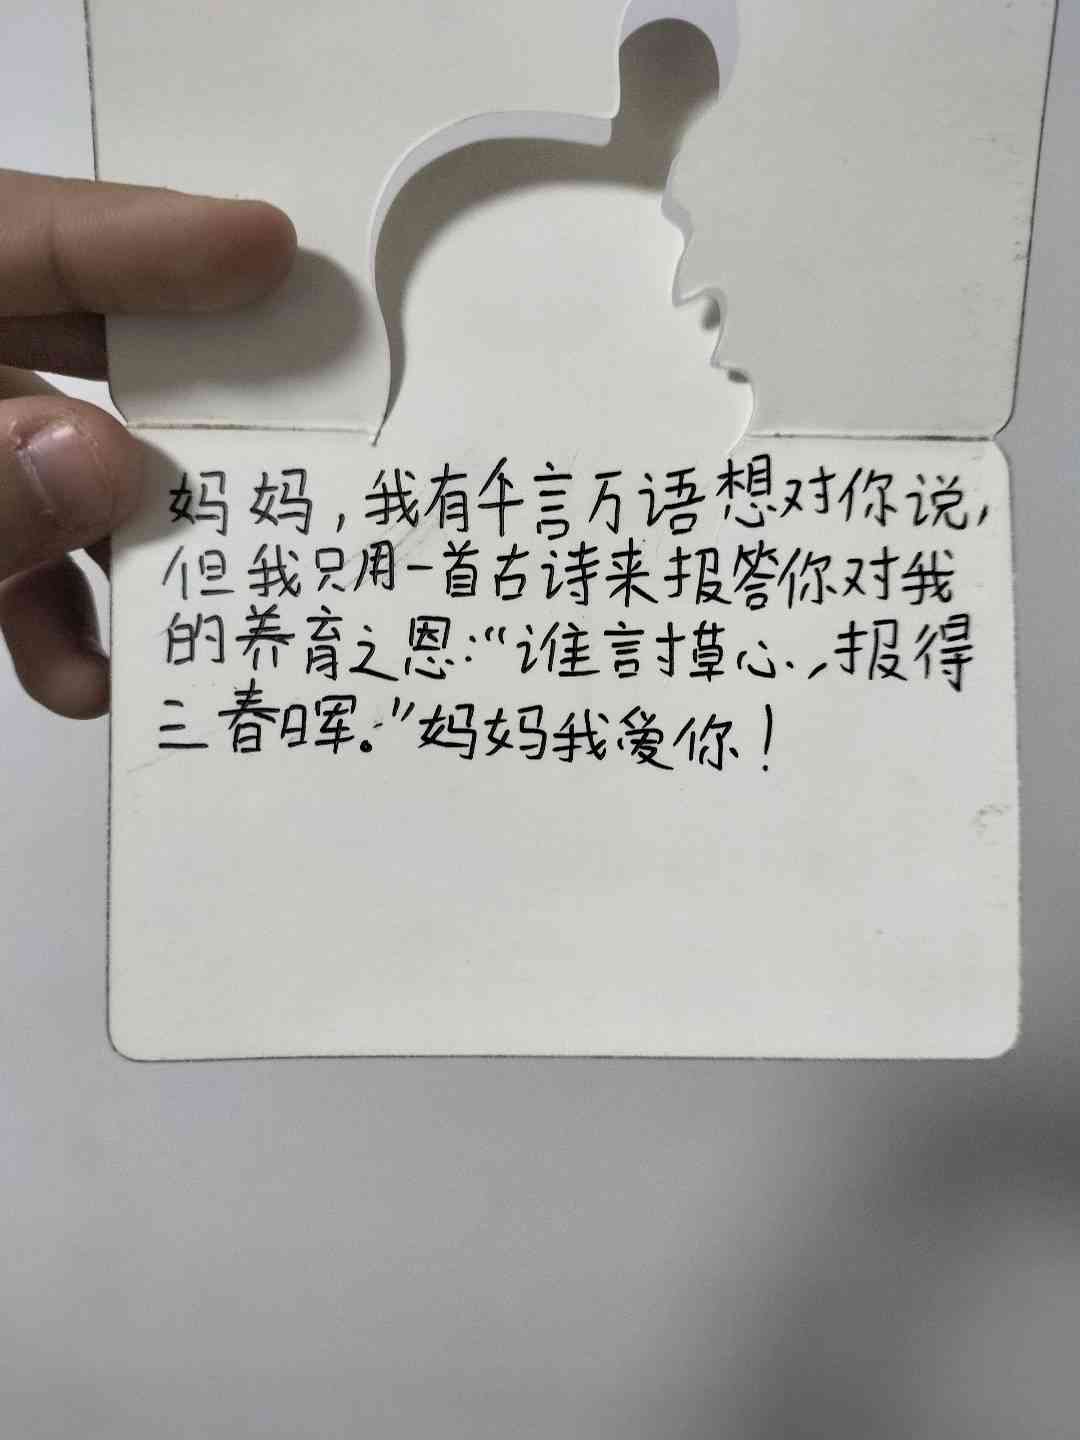 妈妈，我有千言万语想对你说，
但我只用一首古诗来报答你对我
的养育之恩：“谁言寸草心，报得
三春晖。”妈妈我爱你！